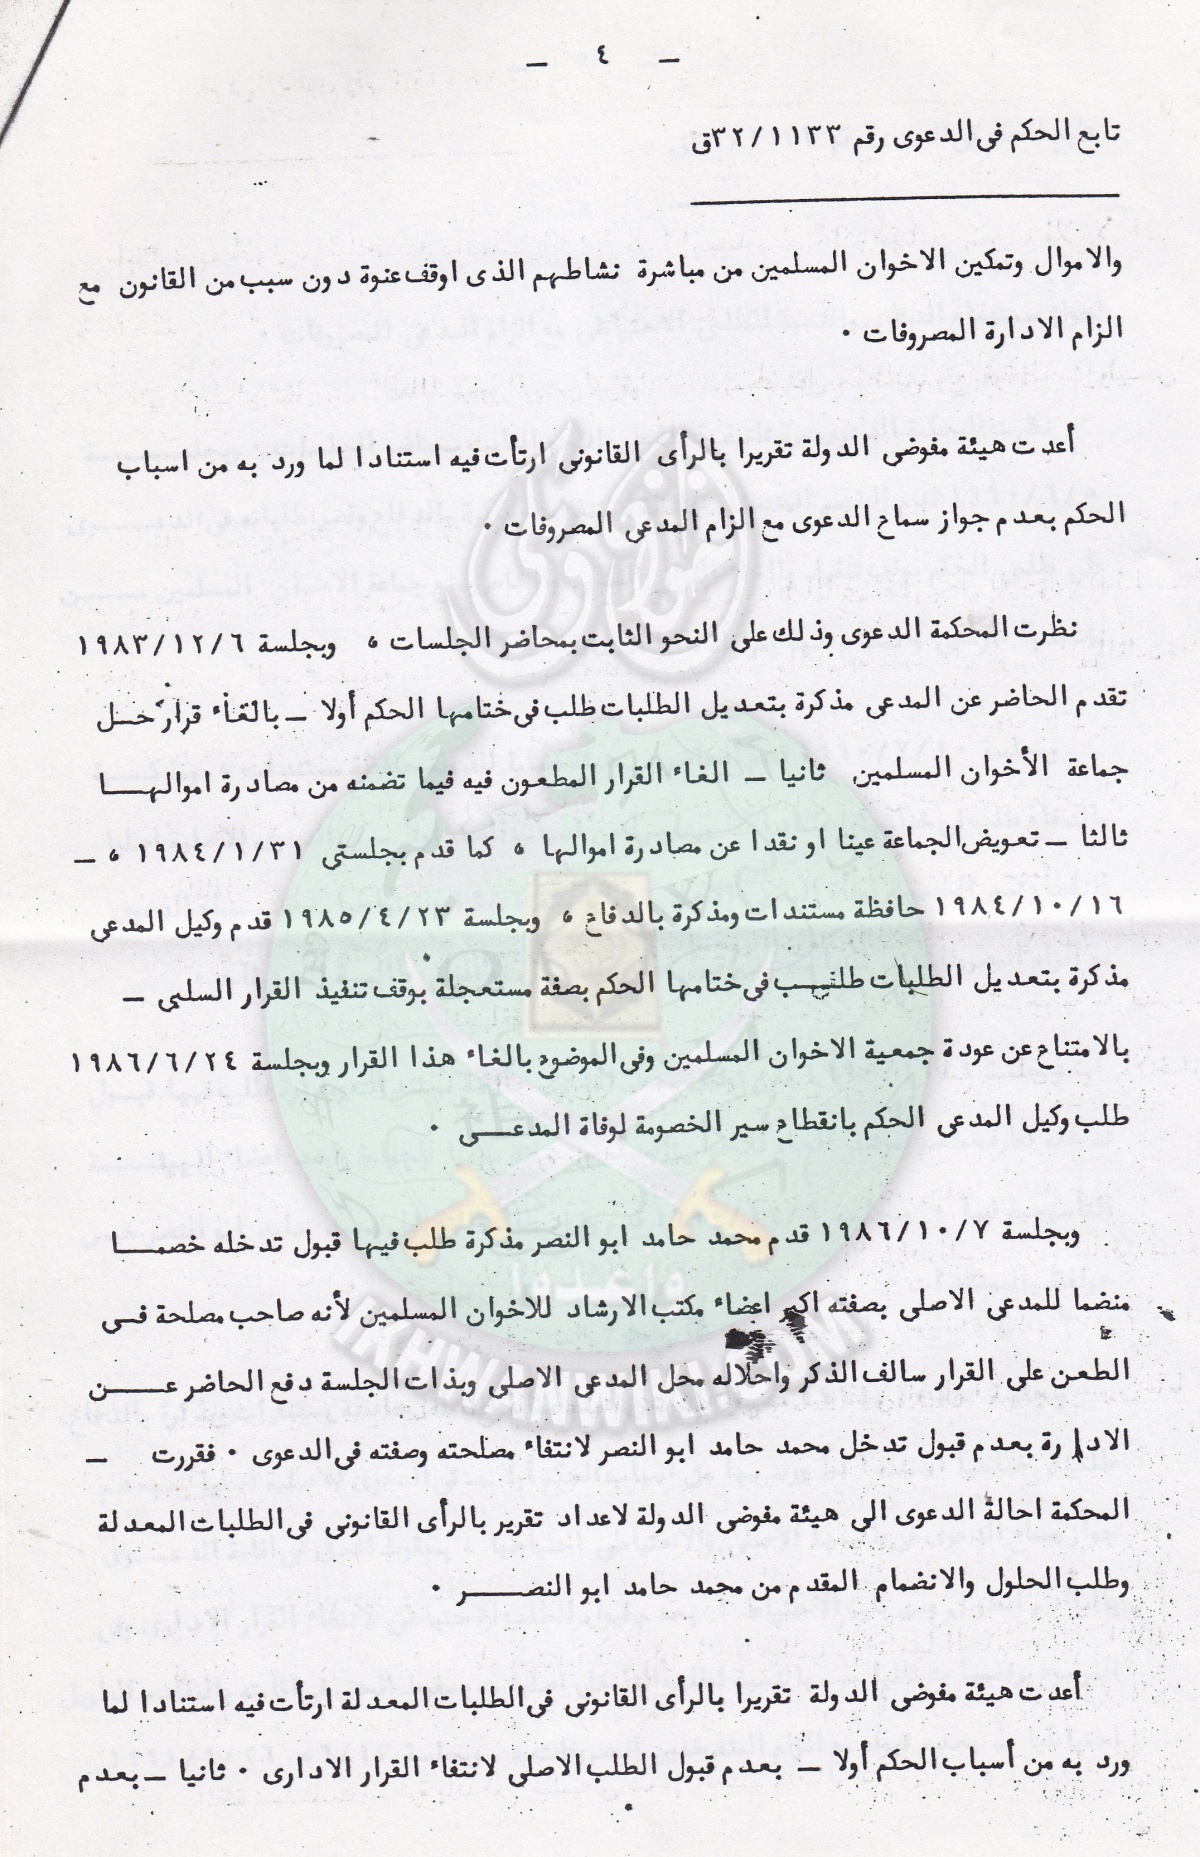 - ٤ -
تابع الحكم فى الدعوى رقم ٣٢/١١٣٣ق
والاموال وتمكين الاخوان المسلمين من مباشرة نشاطهم الذى اوقف عنوة دون سبب من القانون مع
الزام الادارة المصروفات ٠
أعدت هيئة مفوضى الدولة تقريرا بالرأى القانونى ارتأت فيه استنادا لما ورد به من اسباب
الحكم بعدم جواز سماع الدعوى مع الزام المدعى المصروفات ٠
نظرت المحكمة الدعوى وذلك على النحو الثابت بمحاضر الجلسات ٥ وبجلسة ١٩٨٣/١٢/٦
تقدم الحاضر عن المدعى مذكرة بتعديل الطلبات طلب فى ختامها الحكم أولا - بالغاء قرار حـل
جماعة الأخوان المسلمين ثانيا - الغاء القرار المطعون فيه فيما تضمنه من مصادرة اموالهـــا
ثالثا - تعويض الجماعة عينا او نقدا عن مصادرة اموالها ٥ كما قدم بجلستى ١٩٨٤/١/٣١ ٥ -
١٩٨٤/١٠/١٦ حافظة مستندات ومذكرة بالدفاع ٥ وبجلسة ١٩٨٥/٤/٢٣ قدم وكيل المدعى
مذكرة بتعديل الطلبات طلـــب فى ختامها الحكم بصفة مستعجلة بوقف تنفيذ القرار السلبى -
بالامتناع عن عودة جمعية الاخوان المسلمين وفى الموضوع بالغاء هذا القرار وبجلسة ١٩٨٦/٦/٢٤
طلب وكيل المدعى الحكم بانقطاع سير الخصومة لوفاة المدعـــى ٠
وبجلسة ١٩٨٦/١٠/٧ قدم محمد حامد ابو النصر مذكرة طلب فيها قبول تدخله خصمـــا
منضما للمدعى الاصلى بصفته اكبر اعضاء مكتب الارشاد للاخوان المسلمين لأنه صاحب مصلحة فـى
الطعن على القرار سالف الذكر واحلاله محل المدعى الاصلى وبذات الجلسة دفع الحاضر عـــن
الادارة بعدم قبول تدخل محمد حامد ابو النصر لانتفاء مصلحته وصفته فى الدعوى ٠ فقررت -
المحكمة احالة الدعوى الى هيئة مفوضى الدولة لاعداد تقرير بالرأى القانونى فى الطلبات المعدلة
وطلب الحلول والانضمام المقدم من محمد حامد ابو النصـــر ٠
أعدت هيئة مفوضى الدولة تقريرا بالرأى القانونى فى الطلبات المعدلة ارتأت فيه استنادا لما
ورد به من أسباب الحكم أولا - بعدم قبول الطلب الاصلى لانتفاء القرار الادارى ٠ ثانيا - بعدم
وأعدوا
IKHWANWIKI.COM